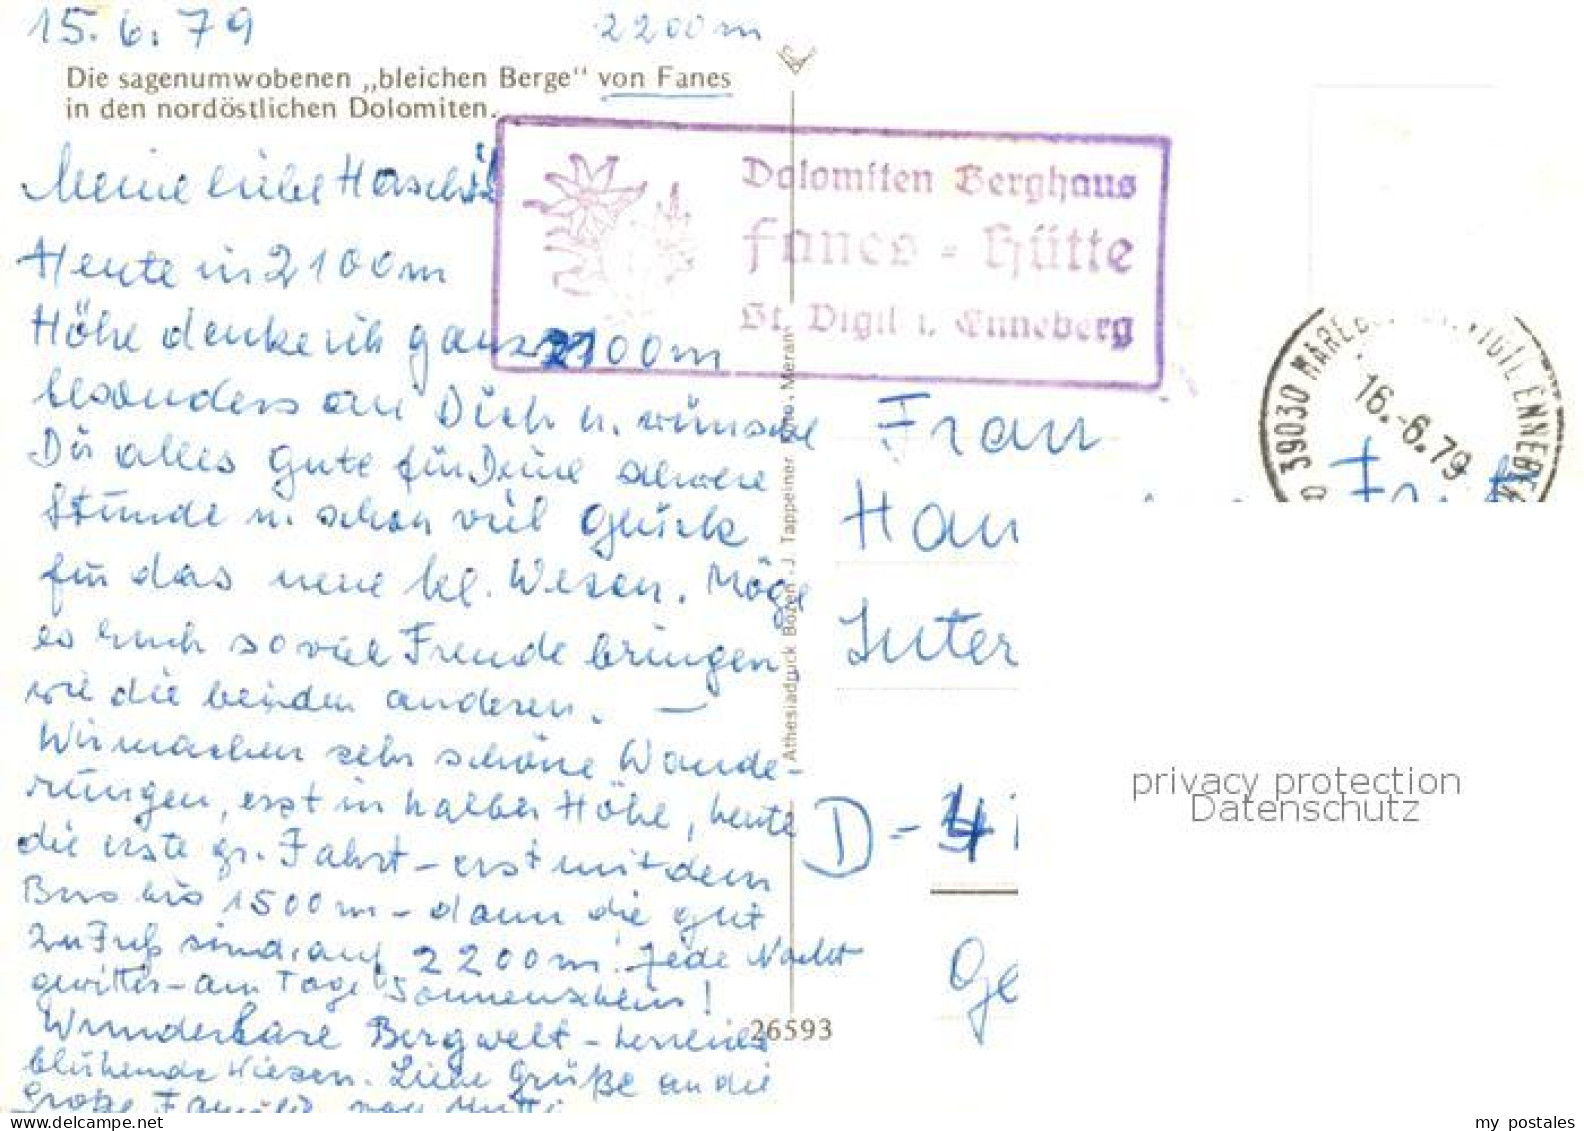 15.6.79
2200m
Die sagenumwobenen „bleichen Berge“ von Fanes
in den nordöstlichen Dolomiten.
Dolomiten Berghaus
Fanes - Hütte
St. Vigil i. Enneberg
Meine liebe
Heute in 2100m
Höhe denke ich ganz
2100m
besonders an Dich u. wünsche
Dir alles Gute für Deine schwere
Stunde u. schon viel Glück
für das neue kl. Wesen. Möge
es Euch so viel Freude bringen
wie die beiden anderen. —
Wir machen sehr schöne Wande-
rungen, erst in halber Höhe, heute
die erste gr. Fahrt – erst mit dem
Bus bis 1500m – dann die gut
zu Fuß sind, auf 2200m! Jede Nacht
gewitter – am Tage Sonnenschein!
Wunderbare Bergwelt – herrliche
blühende Wiesen. Liebe Grüße an die
große Familie von Mutti
Athesiadruck Bozen . J. Tappeiner, Foto, Meran
26593
39030 VIGIL ENNEBE
16.-6.79
Frau
Han
Inter
D-4
Ge
privacy protection
Datenschutz
my postales